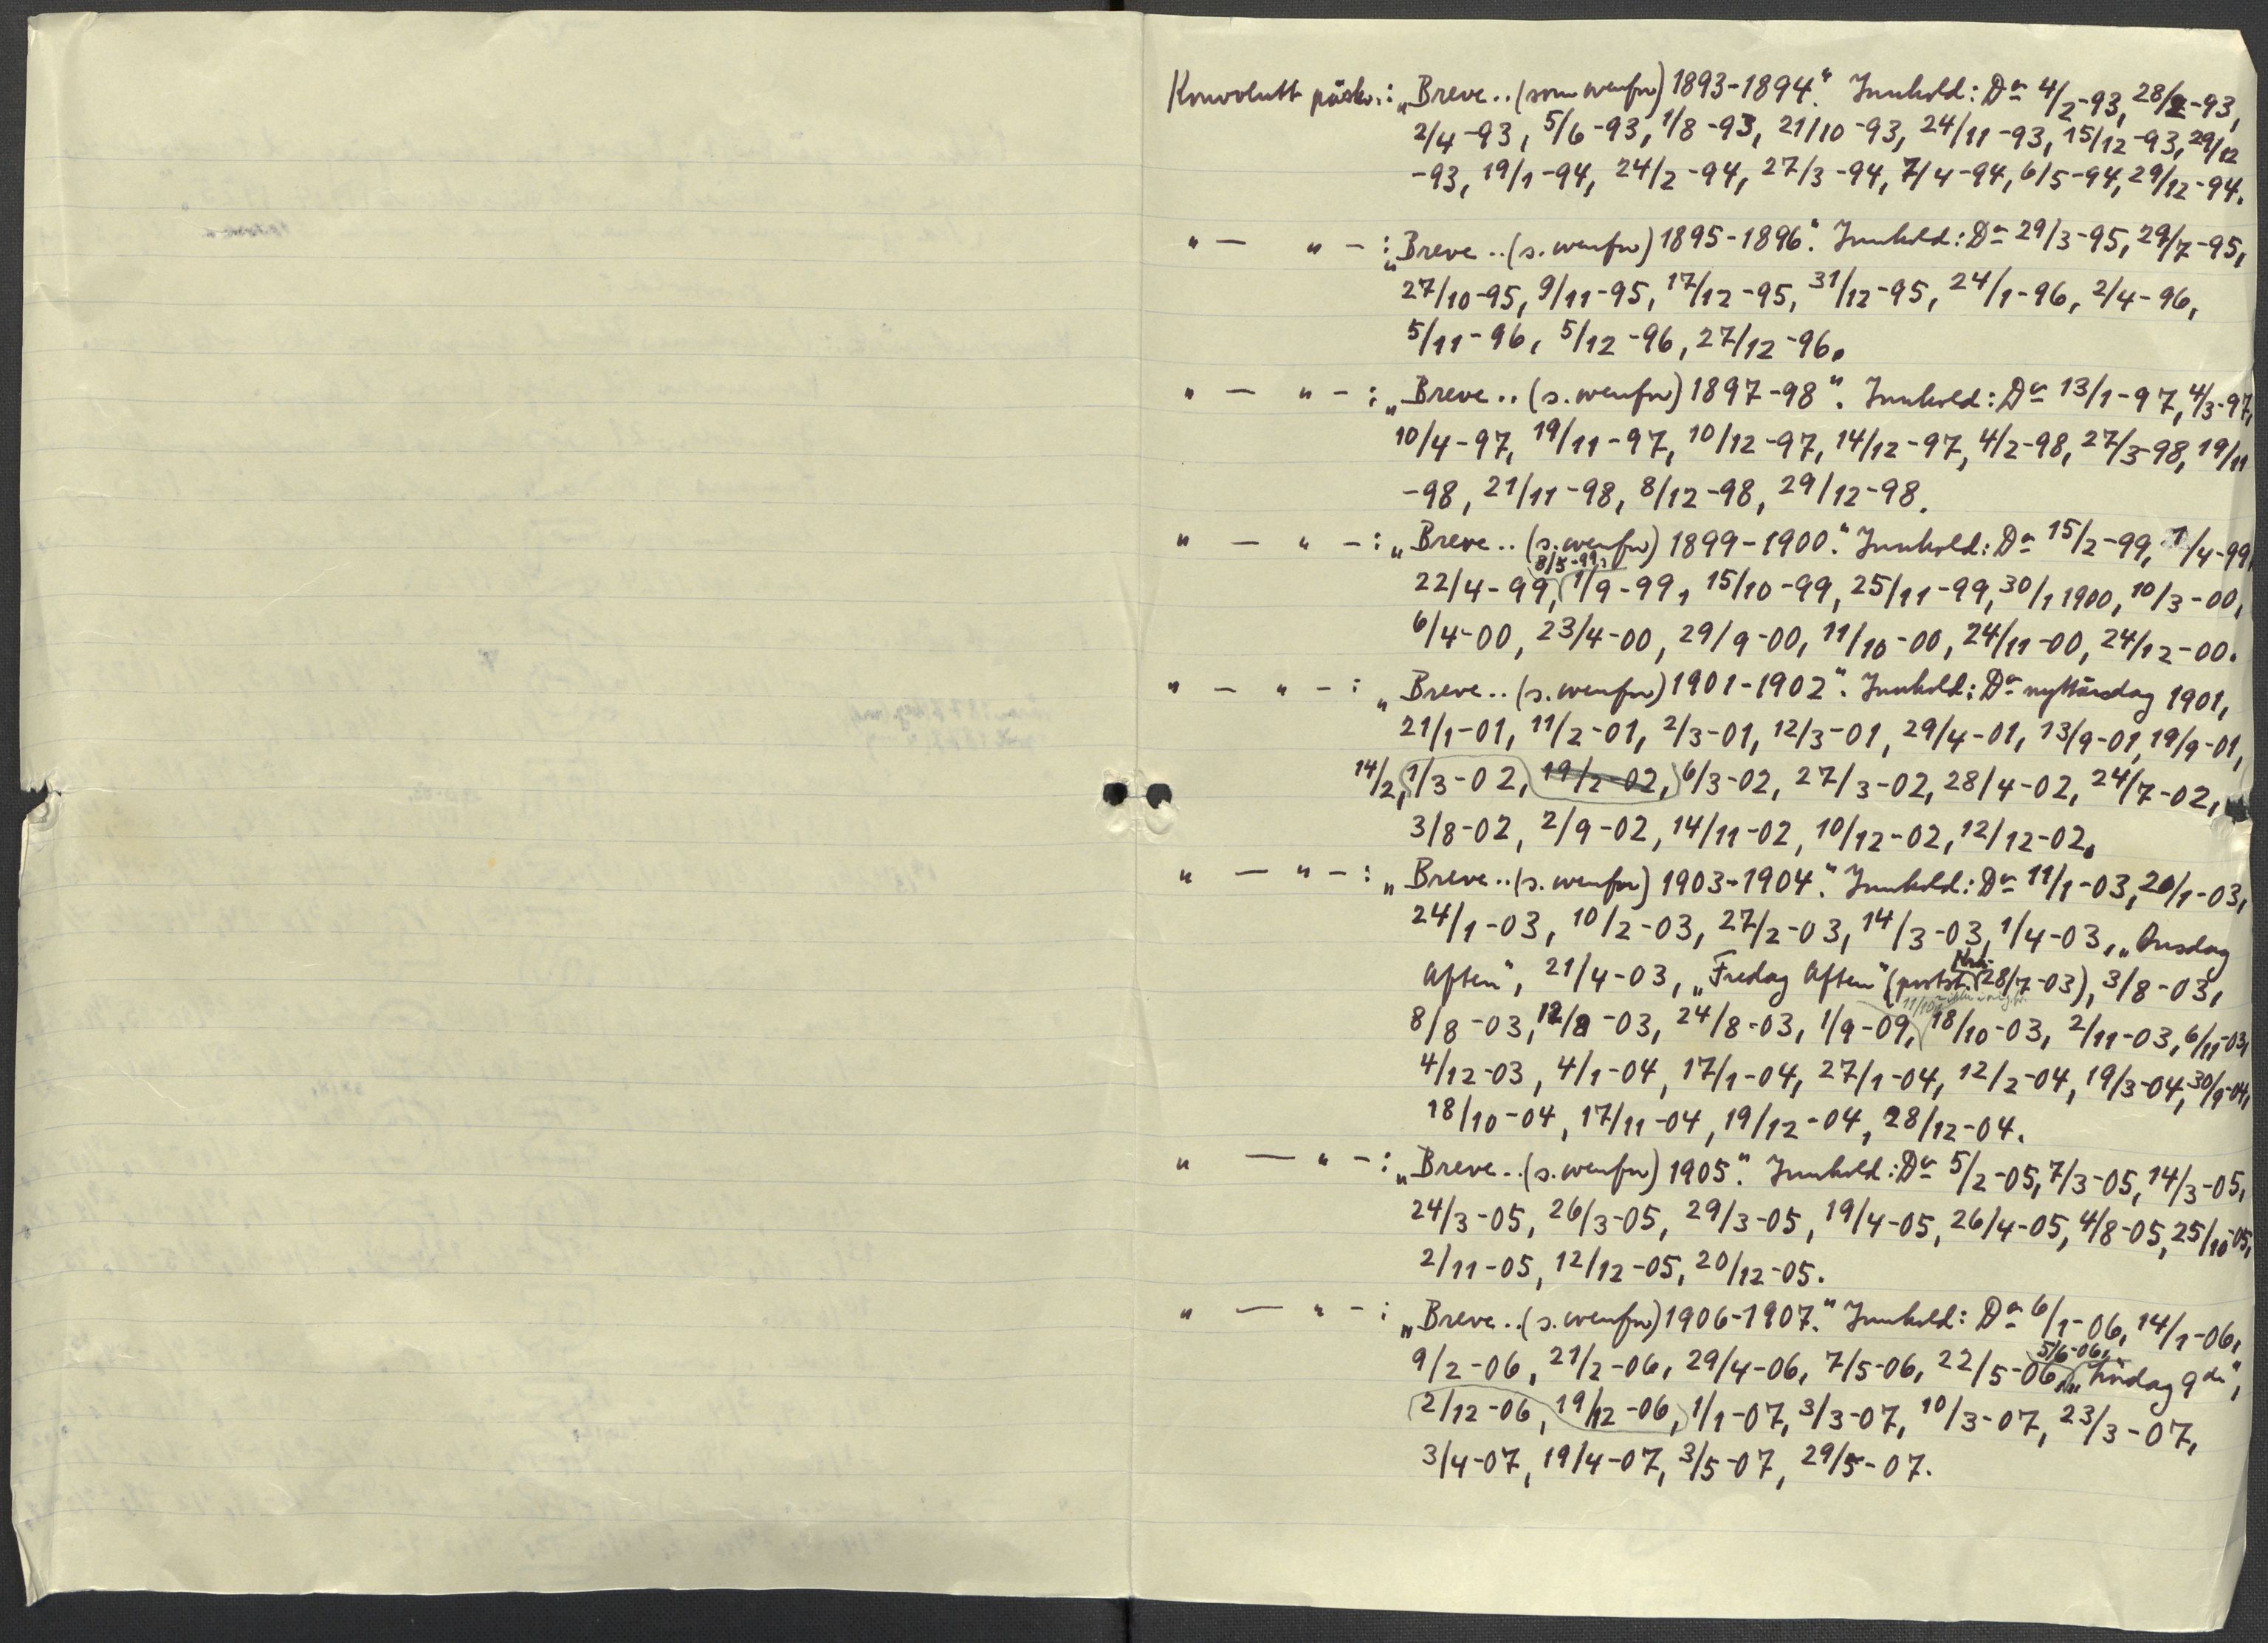 Konvolutt påskr.: „Breve.. (som ovenfor) 1893-1894". Innhold: Da 4/2-93, 28/2-93,
2/4-93, 5/6-93, 1/8-93, 21/10-93, 24/11-93, 15/12-93, 29/12
-93, 19/1-94, 24/2-94, 27/3-94, 7/4-94, 6/5-94, 29/12-94.
" — " - : „Breve.. (s. ovenfor) 1895-1896". Innhold: Da 29/3-95, 29/7-95,
27/10-95, 9/11-95, 17/12-95, 31/12-95, 24/1-96, 2/4-96,
5/11-96, 5/12-96, 27/12-96.
" — " - : „Breve.. (s. ovenfor) 1897-98". Innhold: Da 13/1-97, 4/3-97,
10/4-97, 19/11-97, 10/12-97, 14/12-97, 4/2-98, 27/3-98, 19/11
-98, 21/11-98, 8/12-98, 29/12-98.
" — " - : „Breve.. (s. ovenfor) 1899-1900". Innhold: Da 15/2-99, 1/4-99,
8/5-99,
22/4-99, 1/9-99, 15/10-99, 25/11-99, 30/1 1900, 10/3-00,
6/4-00, 23/4-00, 29/9-00, 11/10-00, 24/11-00, 24/12-00.
" — " - : „Breve.. (s. ovenfor) 1901-1902". Innhold: Da nyttårsdag 1901,
21/1-01, 11/2-01, 2/3-01, 12/3-01, 29/4-01, 13/9-01, 19/9-01,
14/2, 1/3-02, 19/2-02, 6/3-02, 27/3-02, 28/4-02, 24/7-02,
3/8-02, 2/9-02, 14/11-02, 10/12-02, 12/12-02.
" — " - : „Breve.. (s. ovenfor) 1903-1904". Innhold: Da 11/1-03, 20/1-03,
24/1-03, 10/2-03, 27/2-03, 14/3-03, 1/4-03, „Onsdag
Aften", 21/4-03, „Fredag Aften" (postst. 28/7-03), 3/8-03,
11/10
8/8-03, 12/8-03, 24/8-03, 1/9-09, 18/10-03, 2/11-03, 6/11-03,
4/12-03, 4/1-04, 17/1-04, 27/1-04, 12/2-04, 19/3-04, 30/9-04,
18/10-04, 17/11-04, 19/12-04, 28/12-04.
" — " - : „Breve.. (s. ovenfor) 1905". Innhold: Da 5/2-05, 7/3-05, 14/3-05,
24/3-05, 26/3-05, 29/3-05, 19/4-05, 26/4-05, 4/8-05, 25/10-05,
2/11-05, 12/12-05, 20/12-05.
" — " - : „Breve.. (s. ovenfor) 1906-1907". Innhold: Da 6/1-06, 14/1-06,
5/6-06,
9/2-06, 21/2-06, 29/4-06, 7/5-06, 22/5-06, „Lördag 9de",
2/12-06, 19/12-06, 1/1-07, 3/3-07, 10/3-07, 23/3-07,
3/4-07, 19/4-07, 3/5-07, 29/5-07.